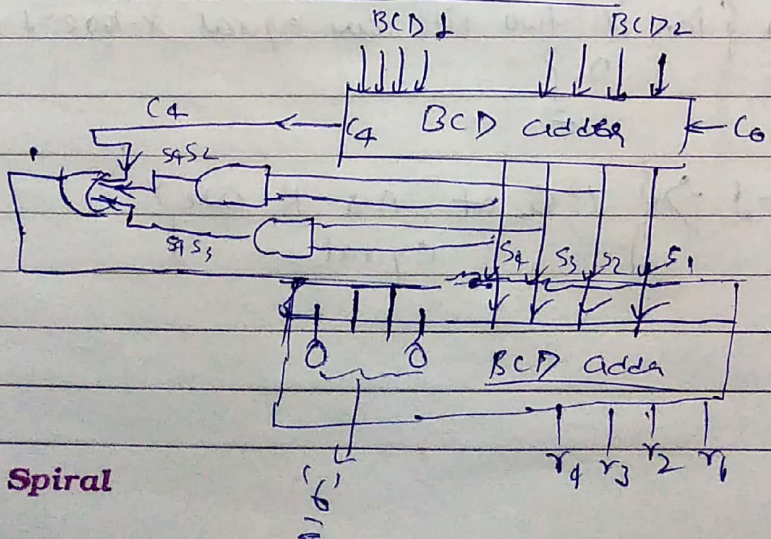 BCD 1 BCD2
C4 C4 BCD adder C0
S4S2
S4S3 S4 S3 S2 S1
0 0 BCD adder
r4 r3 r2 r1
'6'
Spiral